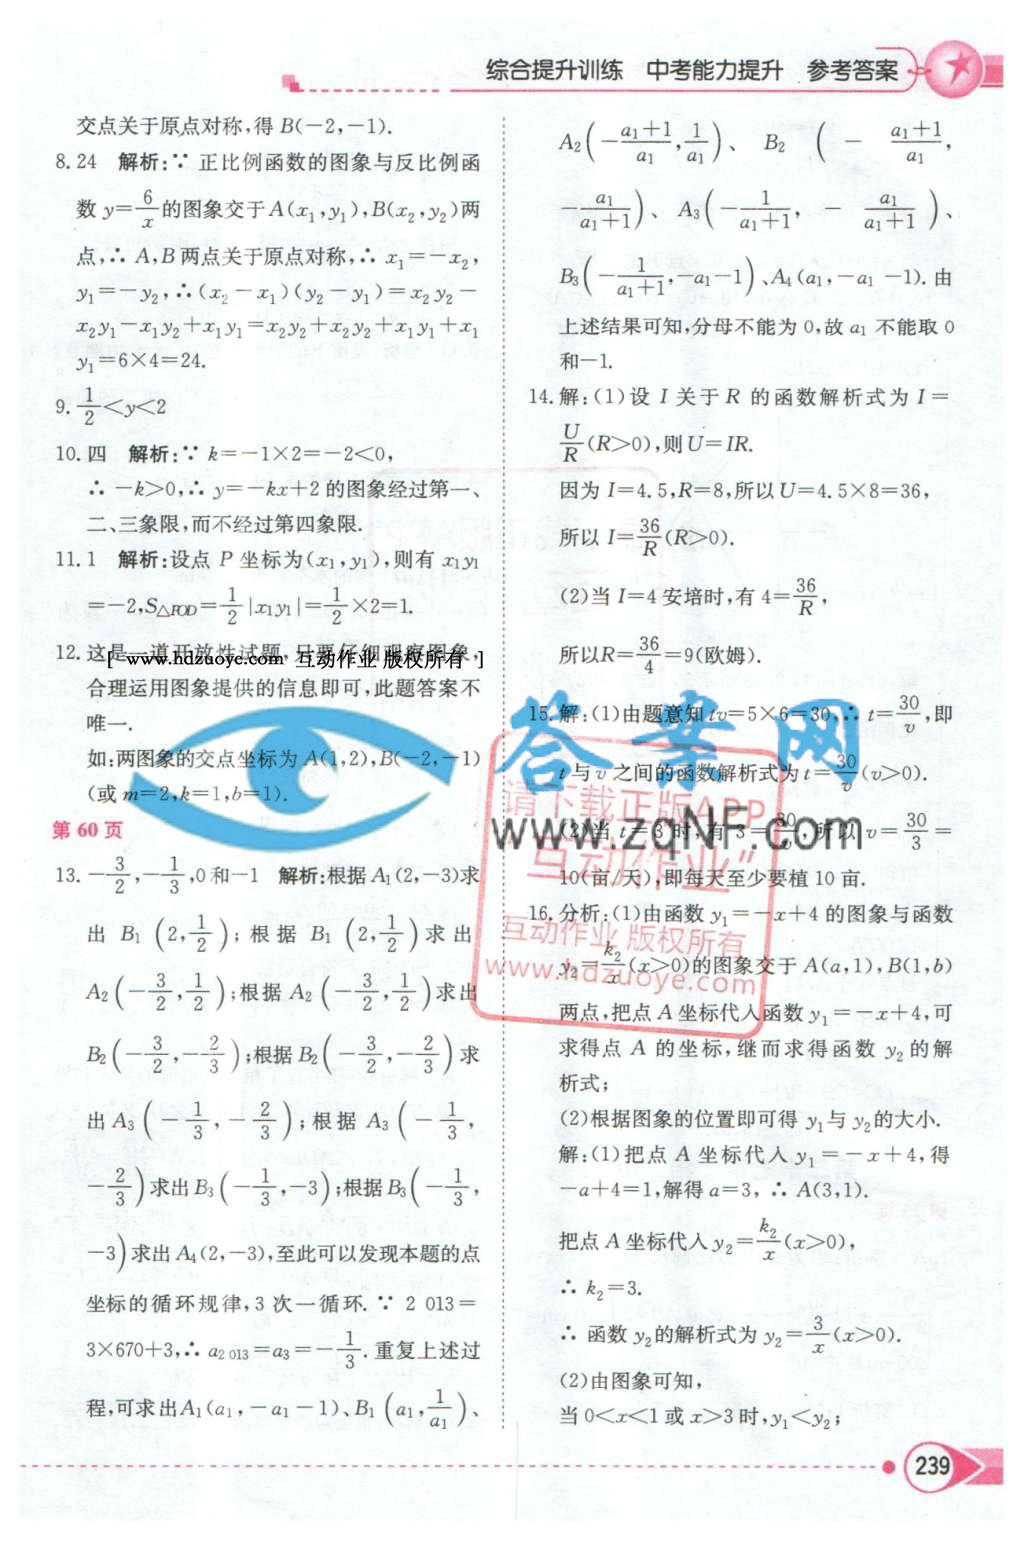 综合提升训练 中考能力提升 参考答案
交点关于原点对称,得 B(-2,-1).
8.24 解析:∵ 正比例函数的图象与反比例函
数 y=6/x的图象交于A(x₁,y₁),B(x₂,y₂)两
点,∴ A,B两点关于原点对称,∴ x₁=-x₂,
y₁=-y₂,∴(x₂-x₁)(y₂-y₁)=x₂y₂-
x₂y₁-x₁y₂+x₁y₁=x₂y₂+x₂y₂+x₁y₁+x₁
y₁=6×4=24.
9.1/2<y<2
10.四 解析:∵ k=-1×2=-2<0,
∴ -k>0,∴ y=-kx+2的图象经过第一、
二、三象限,而不经过第四象限.
11.1 解析:设点 P 坐标为(x₁,y₁),则有 x₁y₁
=-2,S△POD=1/2|x₁y₁|=1/2×2=1.
12.这是一道开放性试题,只要仔细观察图象,
[ www.hdzuoye.com 互动作业 版权所有 ]
合理运用图象提供的信息即可,此题答案不
唯一.
如:两图象的交点坐标为 A(1,2),B(-2,-1)
(或 m=2,k=1,b=1).
第 60 页
13.-3/2,-1/3,0和-1 解析:根据A₁(2,-3)求
出 B₁(2,1/2);根据 B₁(2,1/2)求出
A₂(-3/2,1/2);根据 A₂(-3/2,1/2)求出
B₂(-3/2,-2/3);根据B₂(-3/2,-2/3)求
出A₃(-1/3,-2/3);根据 A₃(-1/3,
-2/3)求出B₃(-1/3,-3);根据B₃(-1/3,
-3)求出 A₄(2,-3),至此可以发现本题的点
坐标的循环规律,3 次一循环.∵ 2 013=
3×670+3,∴ a₂ ₀₁₃=a₃=-1/3.重复上述过
程,可求出A₁(a₁,-a₁-1)、B₁(a₁,1/a₁)、
A₂(-(a₁+1)/a₁,1/a₁)、B₂(-(a₁+1)/a₁,
-a₁/(a₁+1))、A₃(-1/(a₁+1),-a₁/(a₁+1))、
B₃(-1/(a₁+1),-a₁-1)、A₄(a₁,-a₁-1).由
上述结果可知,分母不能为 0,故 a₁ 不能取 0
和-1.
14.解:(1)设 I 关于 R 的函数解析式为 I=
U/R(R>0),则U=IR.
因为 I=4.5,R=8,所以U=4.5×8=36,
所以 I=36/R(R>0).
(2)当 I=4 安培时,有 4=36/R,
所以R=36/4=9(欧姆).
15.解:(1)由题意知tv=5×6=30,∴ t=30/v,即
t与 v 之间的函数解析式为 t=30/v(v>0).
(2)当 t=3 时,有 3=30/v,所以 v=30/3=
10(亩/天),即每天至少要植 10 亩.
16.分析:(1)由函数 y₁=-x+4 的图象与函数
y₂=k₂/x(x>0)的图象交于 A(a,1),B(1,b)
两点,把点 A 坐标代入函数 y₁=-x+4,可
求得点 A 的坐标,继而求得函数 y₂ 的解
析式;
(2)根据图象的位置即可得 y₁与 y₂的大小.
解:(1)把点 A 坐标代入 y₁=-x+4,得
-a+4=1,解得 a=3, ∴ A(3,1).
把点 A坐标代入y₂=k₂/x(x>0),
∴ k₂=3.
∴ 函数 y₂的解析式为 y₂=3/x(x>0).
(2)由图象可知,
当 0<x<1 或 x>3 时,y₁<y₂;
答案网
www.zqNF.com
请下载正版APP
“互动作业”
互动作业 版权所有
www.hdzuoye.com
239